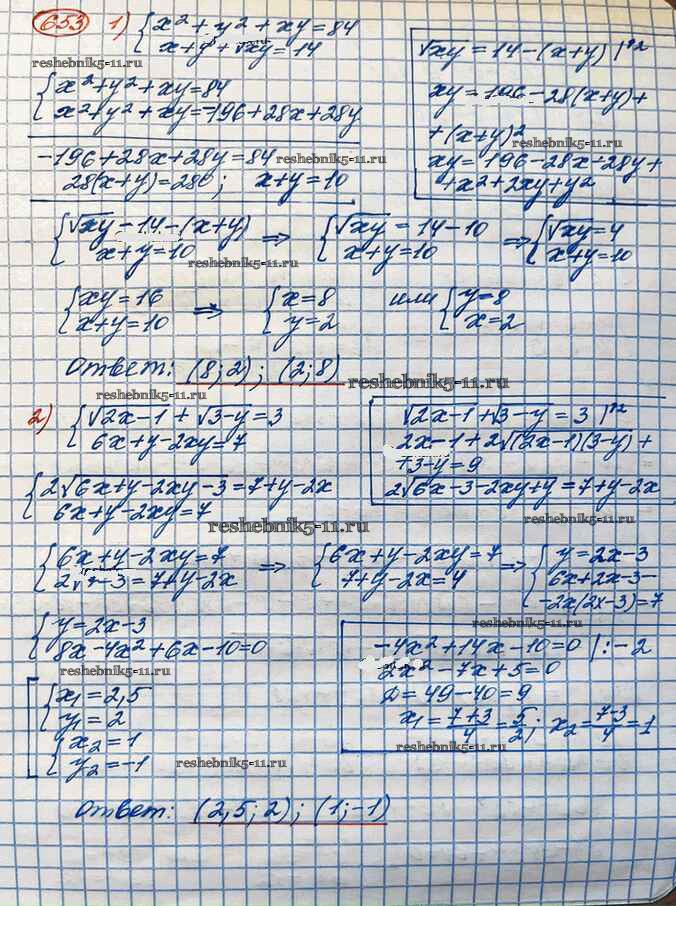 653 1) { x² + y² + xy = 84
x + y + √xy = 14
reshebnik5-11.ru
{ x² + y² + xy = 84
x² + y² + xy = -196 + 28x + 28y
-196 + 28x + 28y = 84
reshebnik5-11.ru
28(x+y) = 280; x + y = 10
√xy = 14 - (x+y) |^2
xy = 196 - 28(x+y) +
+ (x+y)²
reshebnik5-11.ru
xy = 196 - 28x - 28y +
+ x² + 2xy + y²
{ √xy = 14 - (x+y) x+y = 10 ⇒ { √xy = 14 - 10 x+y = 10 ⇒ { √xy = 4 x+y = 10
reshebnik5-11.ru
{ xy = 16 x+y = 10 ⇒ { x = 8 y = 2 или { y = 8 x = 2
Ответ: (8; 2); (2; 8)
reshebnik5-11.ru
reshebnik5-11.ru
2) { √2x-1 + √3-y = 3
6x + y - 2xy = 7
√2x-1 + √3-y = 3 |^2
2x - 1 + 2√(2x-1)(3-y) +
+ 3 - y = 9
2√6x-3-2xy+y = 7 + y - 2x
{ 2√6x+y-2xy-3 = 7 + y - 2x
6x + y - 2xy = 7
reshebnik5-11.ru
reshebnik5-11.ru
{ 6x + y - 2xy = 7 2√7-3 = 7 + y - 2x ⇒ { 6x + y - 2xy = 7 7 + y - 2x = 4 ⇒ { y = 2x - 3 6x + 2x - 3 -
- 2x(2x-3) = 7
reshebnik5-11.ru
{ y = 2x - 3
8x - 4x² + 6x - 10 = 0
-4x² + 14x - 10 = 0 |: -2
2x² - 7x + 5 = 0
D = 49 - 40 = 9
x₁ = 7+3/4 = 5/2; x₂ = 7-3/4 = 1
reshebnik5-11.ru
[ { x₁ = 2,5
y₁ = 2
{ x₂ = 1
y₂ = -1
reshebnik5-11.ru
Ответ: (2,5; 2); (1; -1)